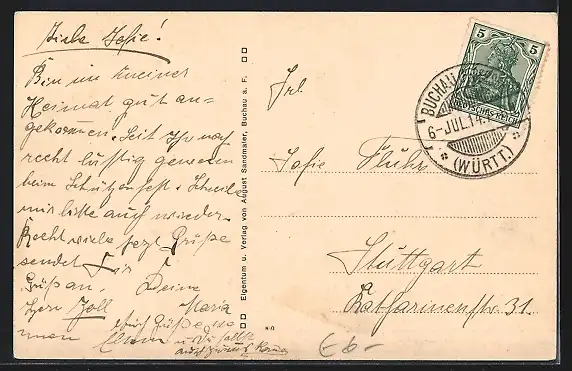 Liebe Sofie!
Bin in meiner
Heimat gut an-
gekommen. Seid Ihr noch
recht lustig gewesen
beim Schützenfest. Schreibe
mir bitte auch wieder
Recht viele herzl. Grüße
sendet Dir
Grüße an Deine
Maria
auch zurück
Frl
Sofie Fluhr
Stuttgart
Katharinenstr. 31.
Eigentum u. Verlag von August Sandmaier, Buchau a. F.
5 5
DEUTSCHES REICH
BUCHAU
6-JUL.14.
(WÜRT.)
E6-